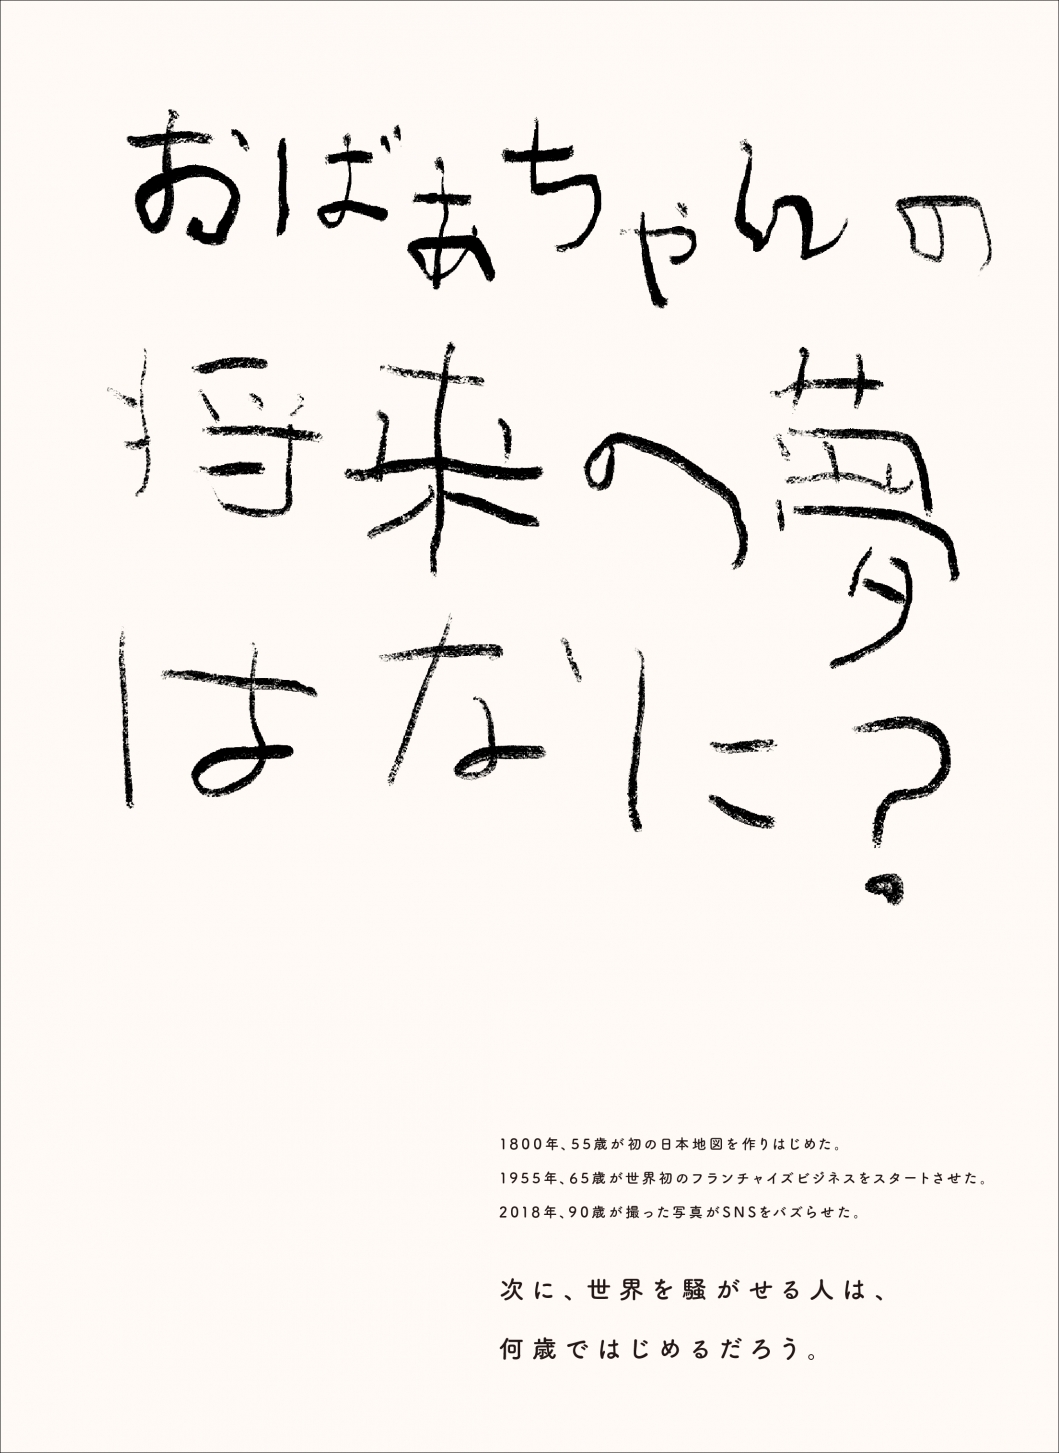 おばあちゃんの
将来の夢
はなに?
1800年、55歳が初の日本地図を作りはじめた。
1955年、65歳が世界初のフランチャイズビジネスをスタートさせた。
2018年、90歳が撮った写真がSNSをバズらせた。
次に、世界を騒がせる人は、
何歳ではじめるだろう。